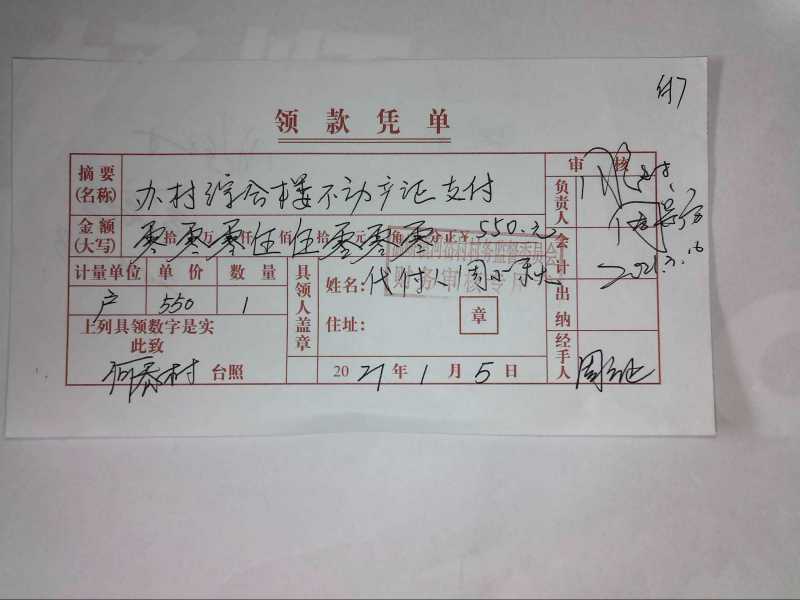 付7
领款凭单
摘要(名称) 办村综合楼不动产证支付
审核
负责人
金额(大写) 零拾零万零仟伍佰伍拾零元零角零分正¥ 550.元
会计
计量单位 单价 数量
户 550 1
具领人盖章
姓名: 代付人 周小
住址:
章
出纳
上列具领数字是实
此致
何家村 台照
2021年1月5日
经手人 周
2021.3.16